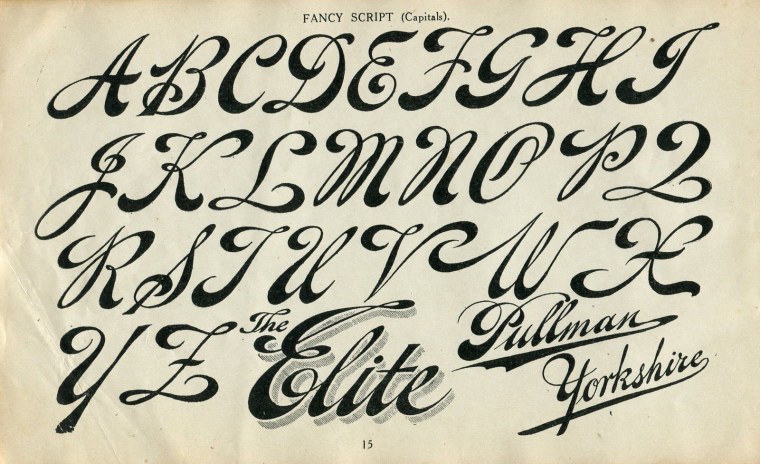 FANCY SCRIPT (Capitals).
A B C D E F G H I
J K L M N O P Q
R S T U V W X
Y Z
The
Elite
Pullman
Yorkshire
15